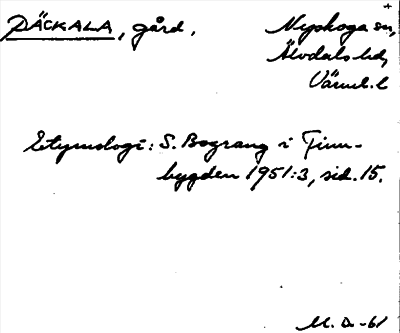 DÄCKALA, gård, Nyskoga sn,
Älvdals hd,
Värml. l
Etymologi: S. Bograng i Finn-
bygden 1951:3, sid. 15.
M. D. -61